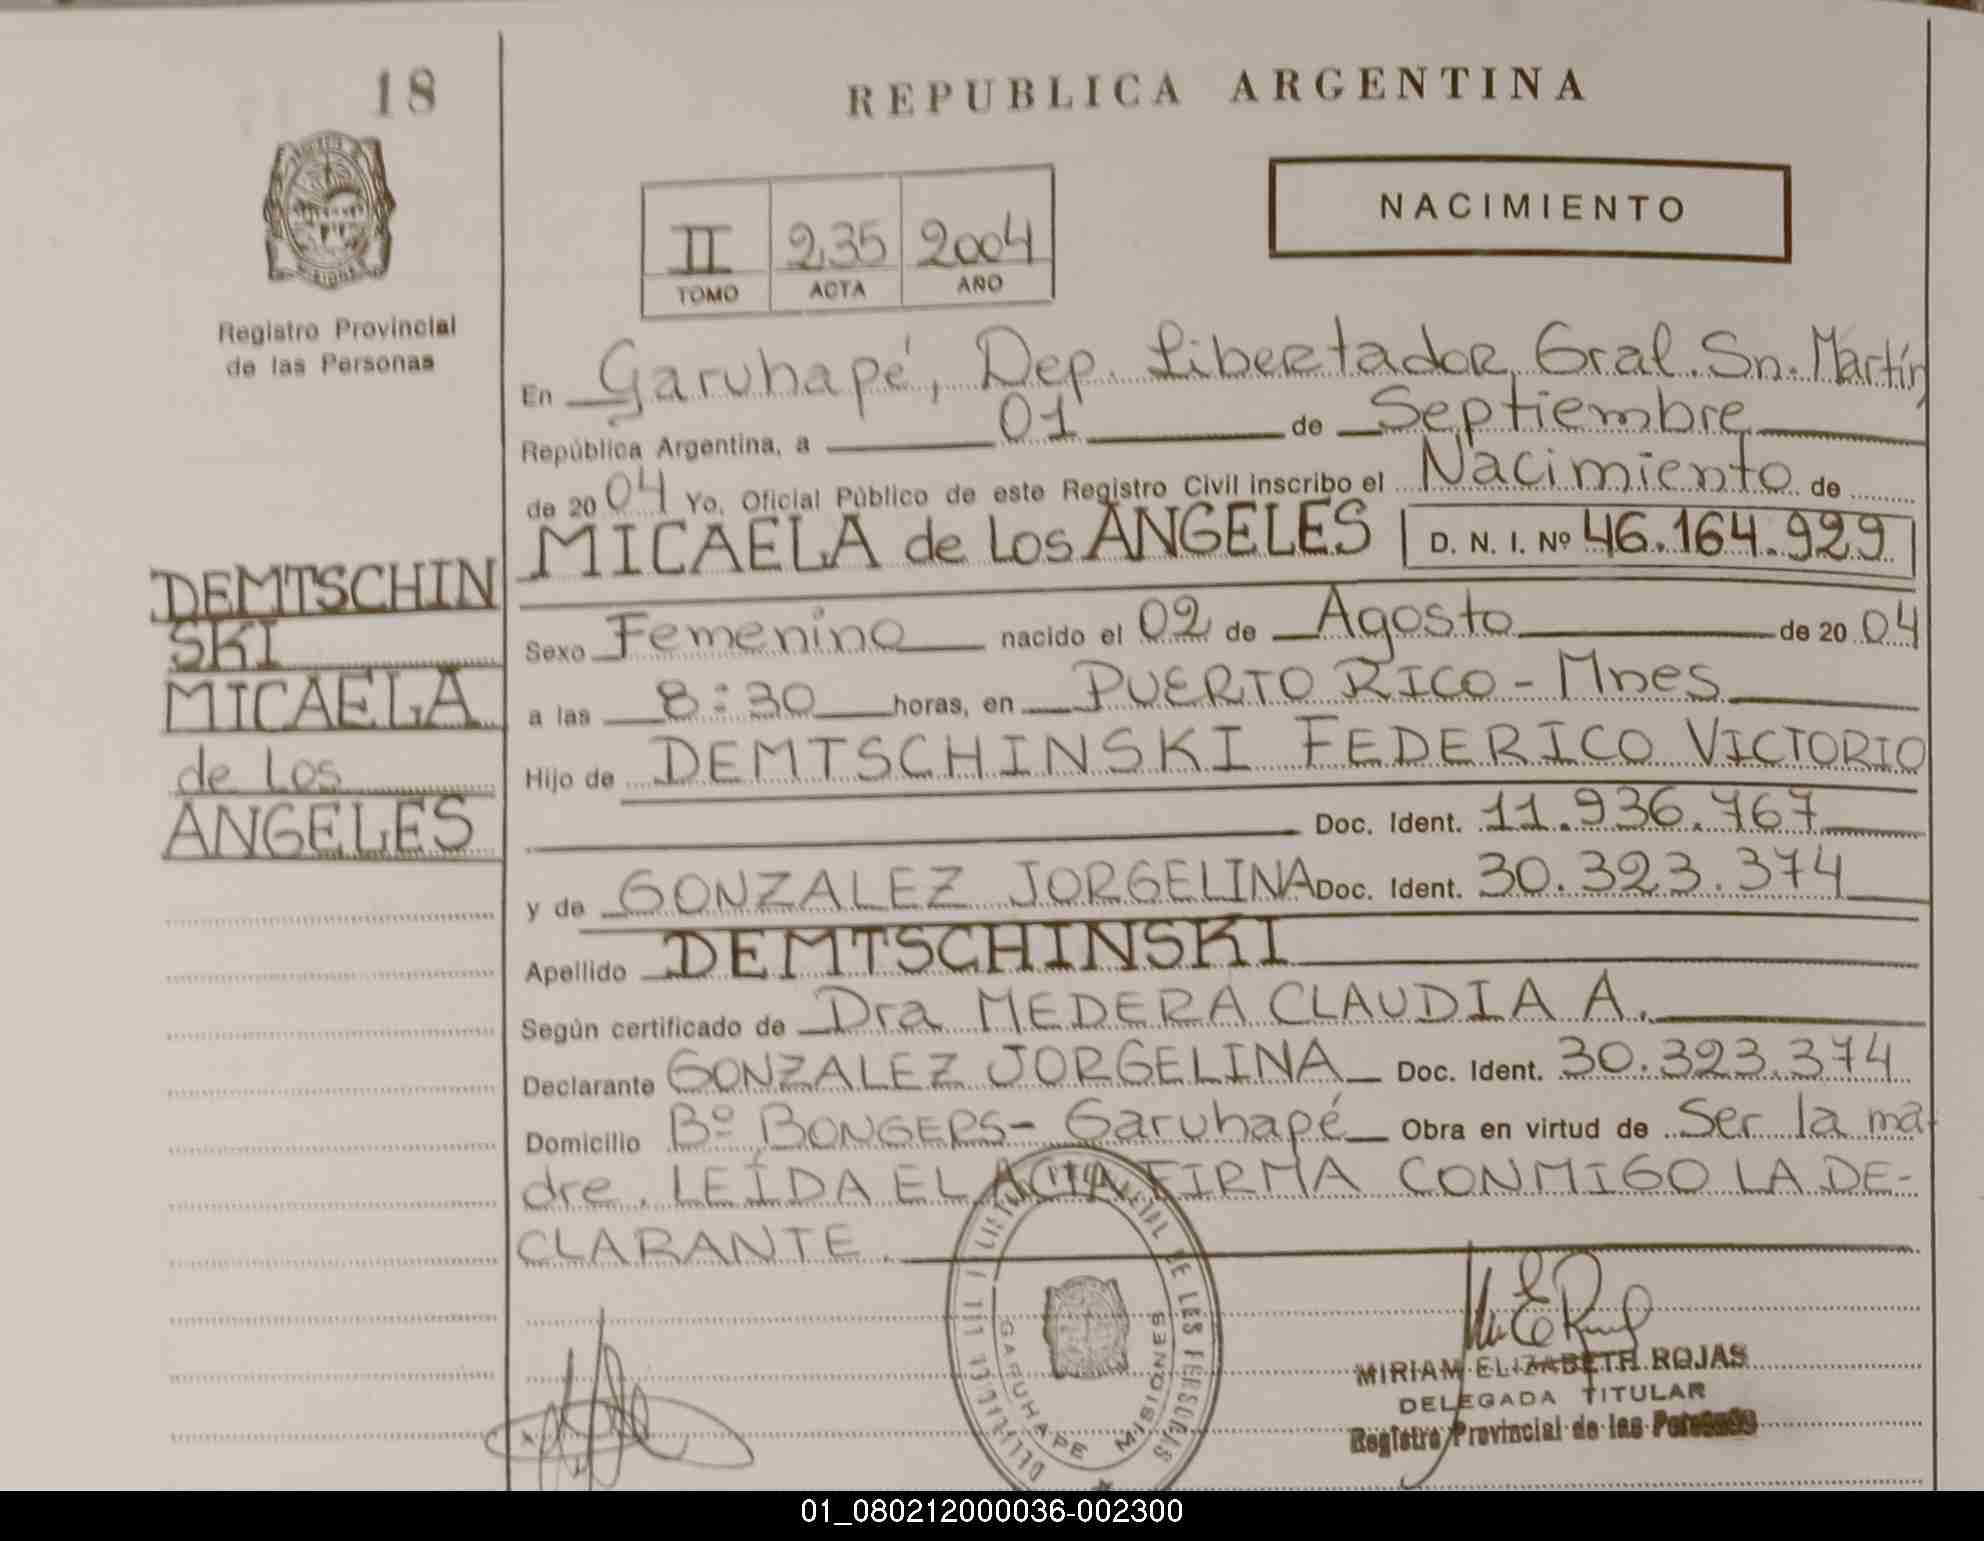 18
REPUBLICA ARGENTINA
NACIMIENTO
II 235 2004
TOMO ACTA AÑO
Registro Provincial
de las Personas
En Garuhapé, Dep. Libertador Gral. Sn. Martín,
República Argentina, a 01 de Septiembre
de 2004 Yo, Oficial Público de este Registro Civil inscribo el Nacimiento de
MICAELA de los ANGELES D. N. I. Nº 46.164.929
DEMTSCHIN
SKI
MICAELA
de los
ANGELES
Sexo Femenino nacido el 02 de Agosto de 2004
a las 8:30 horas, en PUERTO RICO - Mnes
Hijo de DEMTSCHINSKI FEDERICO VICTORIO
Doc. Ident. 11.936.767
y de GONZALEZ JORGELINA Doc. Ident. 30.323.374
Apellido DEMTSCHINSKI
Según certificado de Dra MEDERA CLAUDIA A.
Declarante GONZALEZ JORGELINA Doc. Ident. 30.323.374
Domicilio Bº BONGERS - Garuhapé Obra en virtud de Ser la ma
dre. LEÍDA EL ACTA FIRMA CONMIGO LA DE-
CLARANTE.
GARUHAPE MISIONES
MIRIAM ELIZABETH ROJAS
DELEGADA TITULAR
Registro Provincial de las Personas
01_080212000036-002300